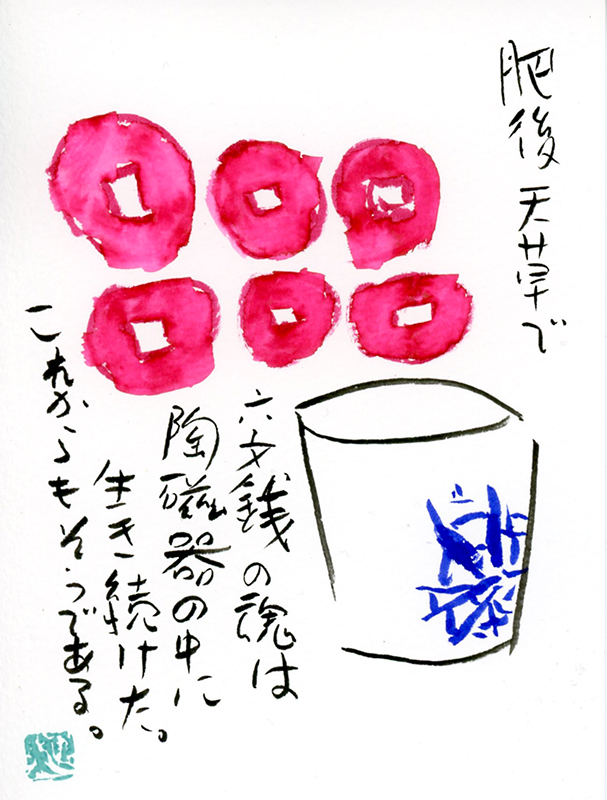 肥後天草で
六文銭の魂は
陶磁器の中に
生き続けた。
これからもそうである。